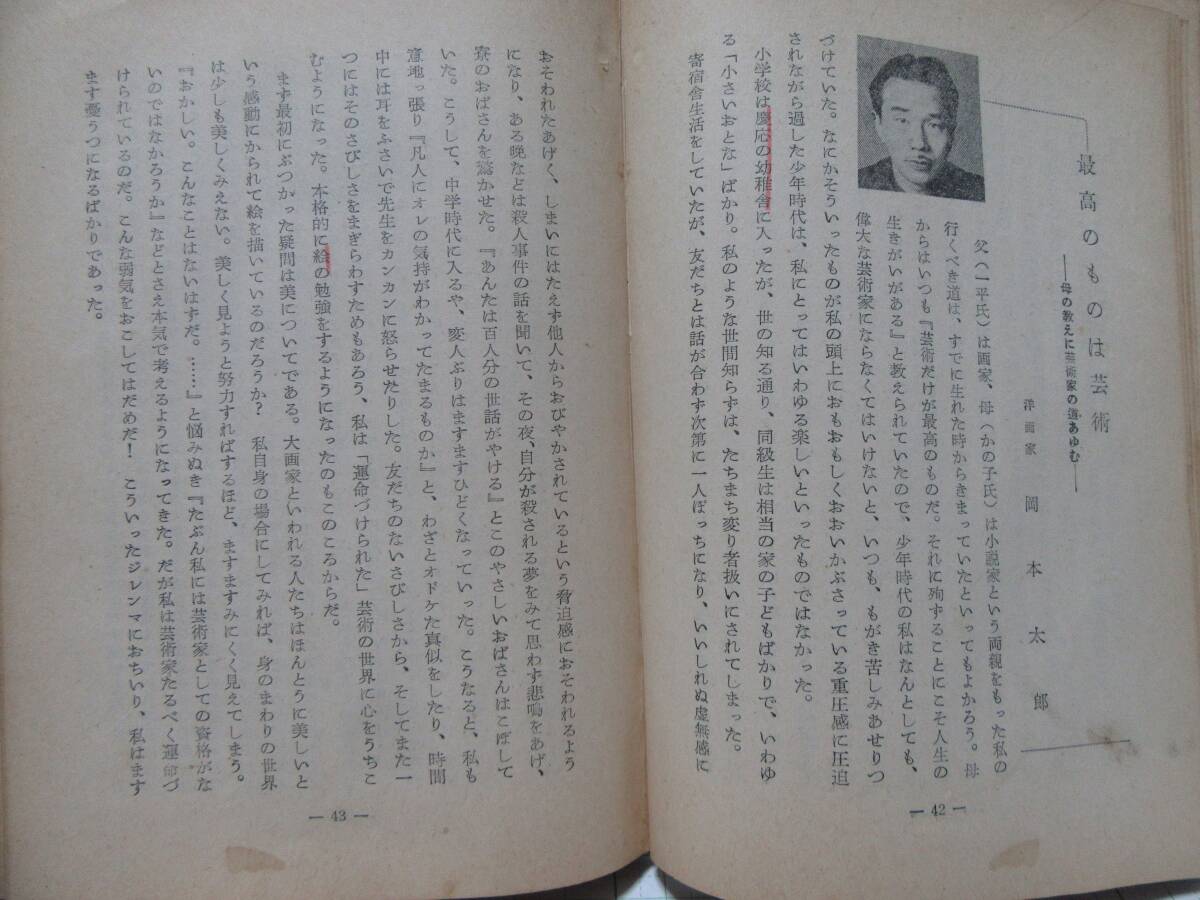 最高のものは芸術
――母の教えに芸術家の道あゆむ――
洋画家　岡本太郎
父（一平氏）は画家、母（かの子氏）は小説家という両親をもった私の
行くべき道は、すでに生れた時からきまっていたといってもよかろう。母
からはいつも『芸術だけが最高のものだ。それに殉ずることにこそ人生の
生きがいがある』と教えられていたので、少年時代の私はなんとしても、
偉大な芸術家にならなくてはいけないと、いつも、もがき苦しみあせりつ
づけていた。なにかそういったものが私の頭上におもおもしくおおいかぶさっている重圧感に圧迫
されながら過した少年時代は、私にとってはいわゆる楽しいといったものではなかった。
小学校は慶応の幼稚舎に入ったが、世の知る通り、同級生は相当の家の子どもばかりで、いわゆ
る「小さいおとな」ばかり。私のような世間知らずは、たちまち変り者扱いにされてしまった。
寄宿舎生活をしていたが、友だちとは話が合わず次第に一人ぼっちになり、いいしれぬ虚無感に
― 42 ―
おそわれたあげく、しまいにはたえず他人からおびやかされているという脅迫感におそわれるよう
になり、ある晩などは殺人事件の話を聞いて、その夜、自分が殺される夢をみて思わず悲鳴をあげ、
寮のおばさんを驚かせた。『あんたは百人分の世話がやける』とこのやさしいおばさんはこぼして
いた。こうして、中学時代に入るや、変人ぶりはますますひどくなっていった。こうなると、私も
意地っ張り『凡人にオレの気持がわかってたまるものか』と、わざとオドケた真似をしたり、時間
中には耳をふさいで先生をカンカンに怒らせたりした。友だちのないさびしさから、そしてまた一
つにはそのさびしさをまぎらわすためもあろう、私は「運命づけられた」芸術の世界に心をうちこ
むようになった。本格的に絵の勉強をするようになったのもこのころからだ。
まず最初にぶつかった疑問は美についてである。大画家といわれる人たちはほんとうに美しいと
いう感動にかられて絵を描いているのだろうか？　私自身の場合にしてみれば、身のまわりの世界
は少しも美しくみえない。美しく見ようと努力すればするほど、ますますみにくく見えてしまう。
『おかしい。こんなことはないはずだ。……』と悩みぬき『たぶん私には芸術家としての資格がな
いのではなかろうか』などとさえ本気で考えるようになってきた。だが私は芸術家たるべく運命づ
けられているのだ。こんな弱気をおこしてはだめだ！　こういったジレンマにおちいり、私はます
ます憂うつになるばかりであった。
― 43 ―